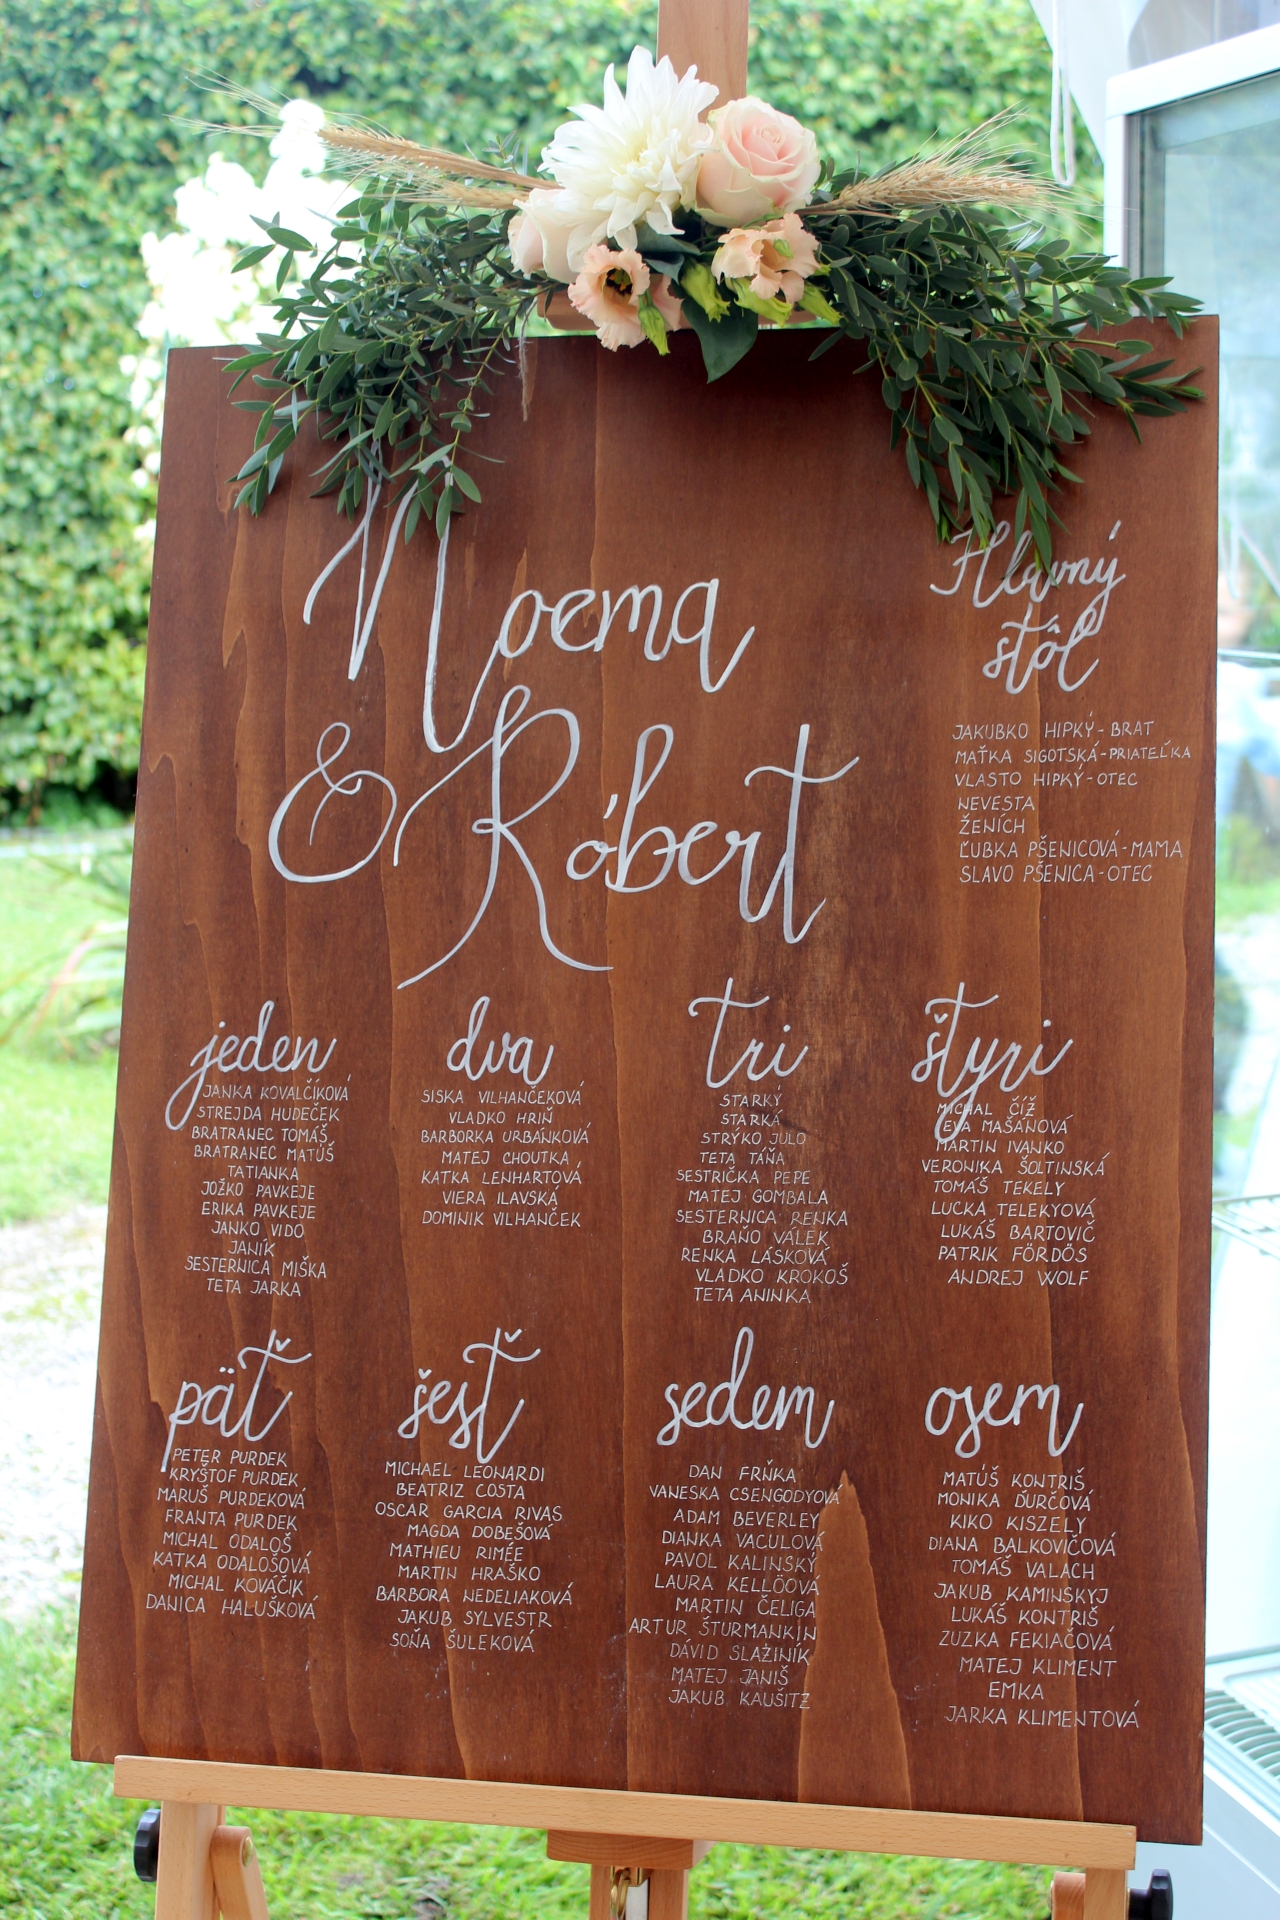 Noema
& Róbert
Hlavný
stôl
JAKUBKO HIPKÝ - BRAT
MAŤKA SIGOTSKÁ - PRIATEĽKA
VLASTO HIPKÝ - OTEC
NEVESTA
ŽENÍCH
ĽUBKA PŠENICOVÁ - MAMA
SLAVO PŠENICA - OTEC
jeden
JANKA KOVALČÍKOVÁ
STREJDA HUDEČEK
BRATRANEC TOMÁŠ
BRATRANEC MATÚŠ
TATIANKA
JOŽKO PAVKEJE
ERIKA PAVKEJE
JANKO VIDO
JANÍK
SESTERNICA MIŠKA
TETA JARKA
dva
SISKA VILHANČEKOVÁ
VLADKO HRIŇ
BARBORKA URBÁNKOVÁ
MATEJ CHOUTKA
KATKA LENHARTOVÁ
VIERA ILAVSKÁ
DOMINIK VILHANČEK
tri
STARKÝ
STARKÁ
STRÝKO JULO
TETA TÁŇA
SESTRIČKA PEPE
MATEJ GOMBALA
SESTERNICA RENKA
BRAŇO VÁLEK
RENKA LÁSKOVÁ
VLADKO KROKOŠ
TETA ANINKA
štyri
MICHAL ČÍŽ
EVA MAŠÁŇOVÁ
MARTIN IVANKO
VERONIKA ŠOLTINSKÁ
TOMÁŠ TEKELY
LUCKA TELEKYOVÁ
LUKÁŠ BARTOVIČ
PATRIK FÖRDÖS
ANDREJ WOLF
päť
PETER PURDEK
KRYŠTOF PURDEK
MARUŠ PURDEKOVÁ
FRANTA PURDEK
MICHAL ODALOŠ
KATKA ODALOŠOVÁ
MICHAL KOVÁČIK
DANICA HALUŠKOVÁ
šesť
MICHAEL LEONARDI
BEATRIZ COSTA
OSCAR GARCIA RIVAS
MAGDA DOBEŠOVÁ
MATHIEU RIMÉE
MARTIN HRAŠKO
BARBORA NEDELIAKOVÁ
JAKUB SYLVESTR
SOŇA ŠULEKOVÁ
sedem
DAN FRŇKA
VANESKA CSENGODYOVÁ
ADAM BEVERLEY
DIANKA VACULOVÁ
PAVOL KALINSKÝ
LAURA KELLÖOVÁ
MARTIN ČELIGA
ARTUR ŠTURMANKIN
DÁVID SLAŽINÍK
MATEJ JANIŠ
JAKUB KAUŠITZ
osem
MATÚŠ KONTRIŠ
MONIKA ĎURČOVÁ
KIKO KISZELY
DIANA BALKOVIČOVÁ
TOMÁŠ VALACH
JAKUB KAMINSKYJ
LUKÁŠ KONTRIŠ
ZUZKA FEKIAČOVÁ
MATEJ KLIMENT
EMKA
JARKA KLIMENTOVÁ